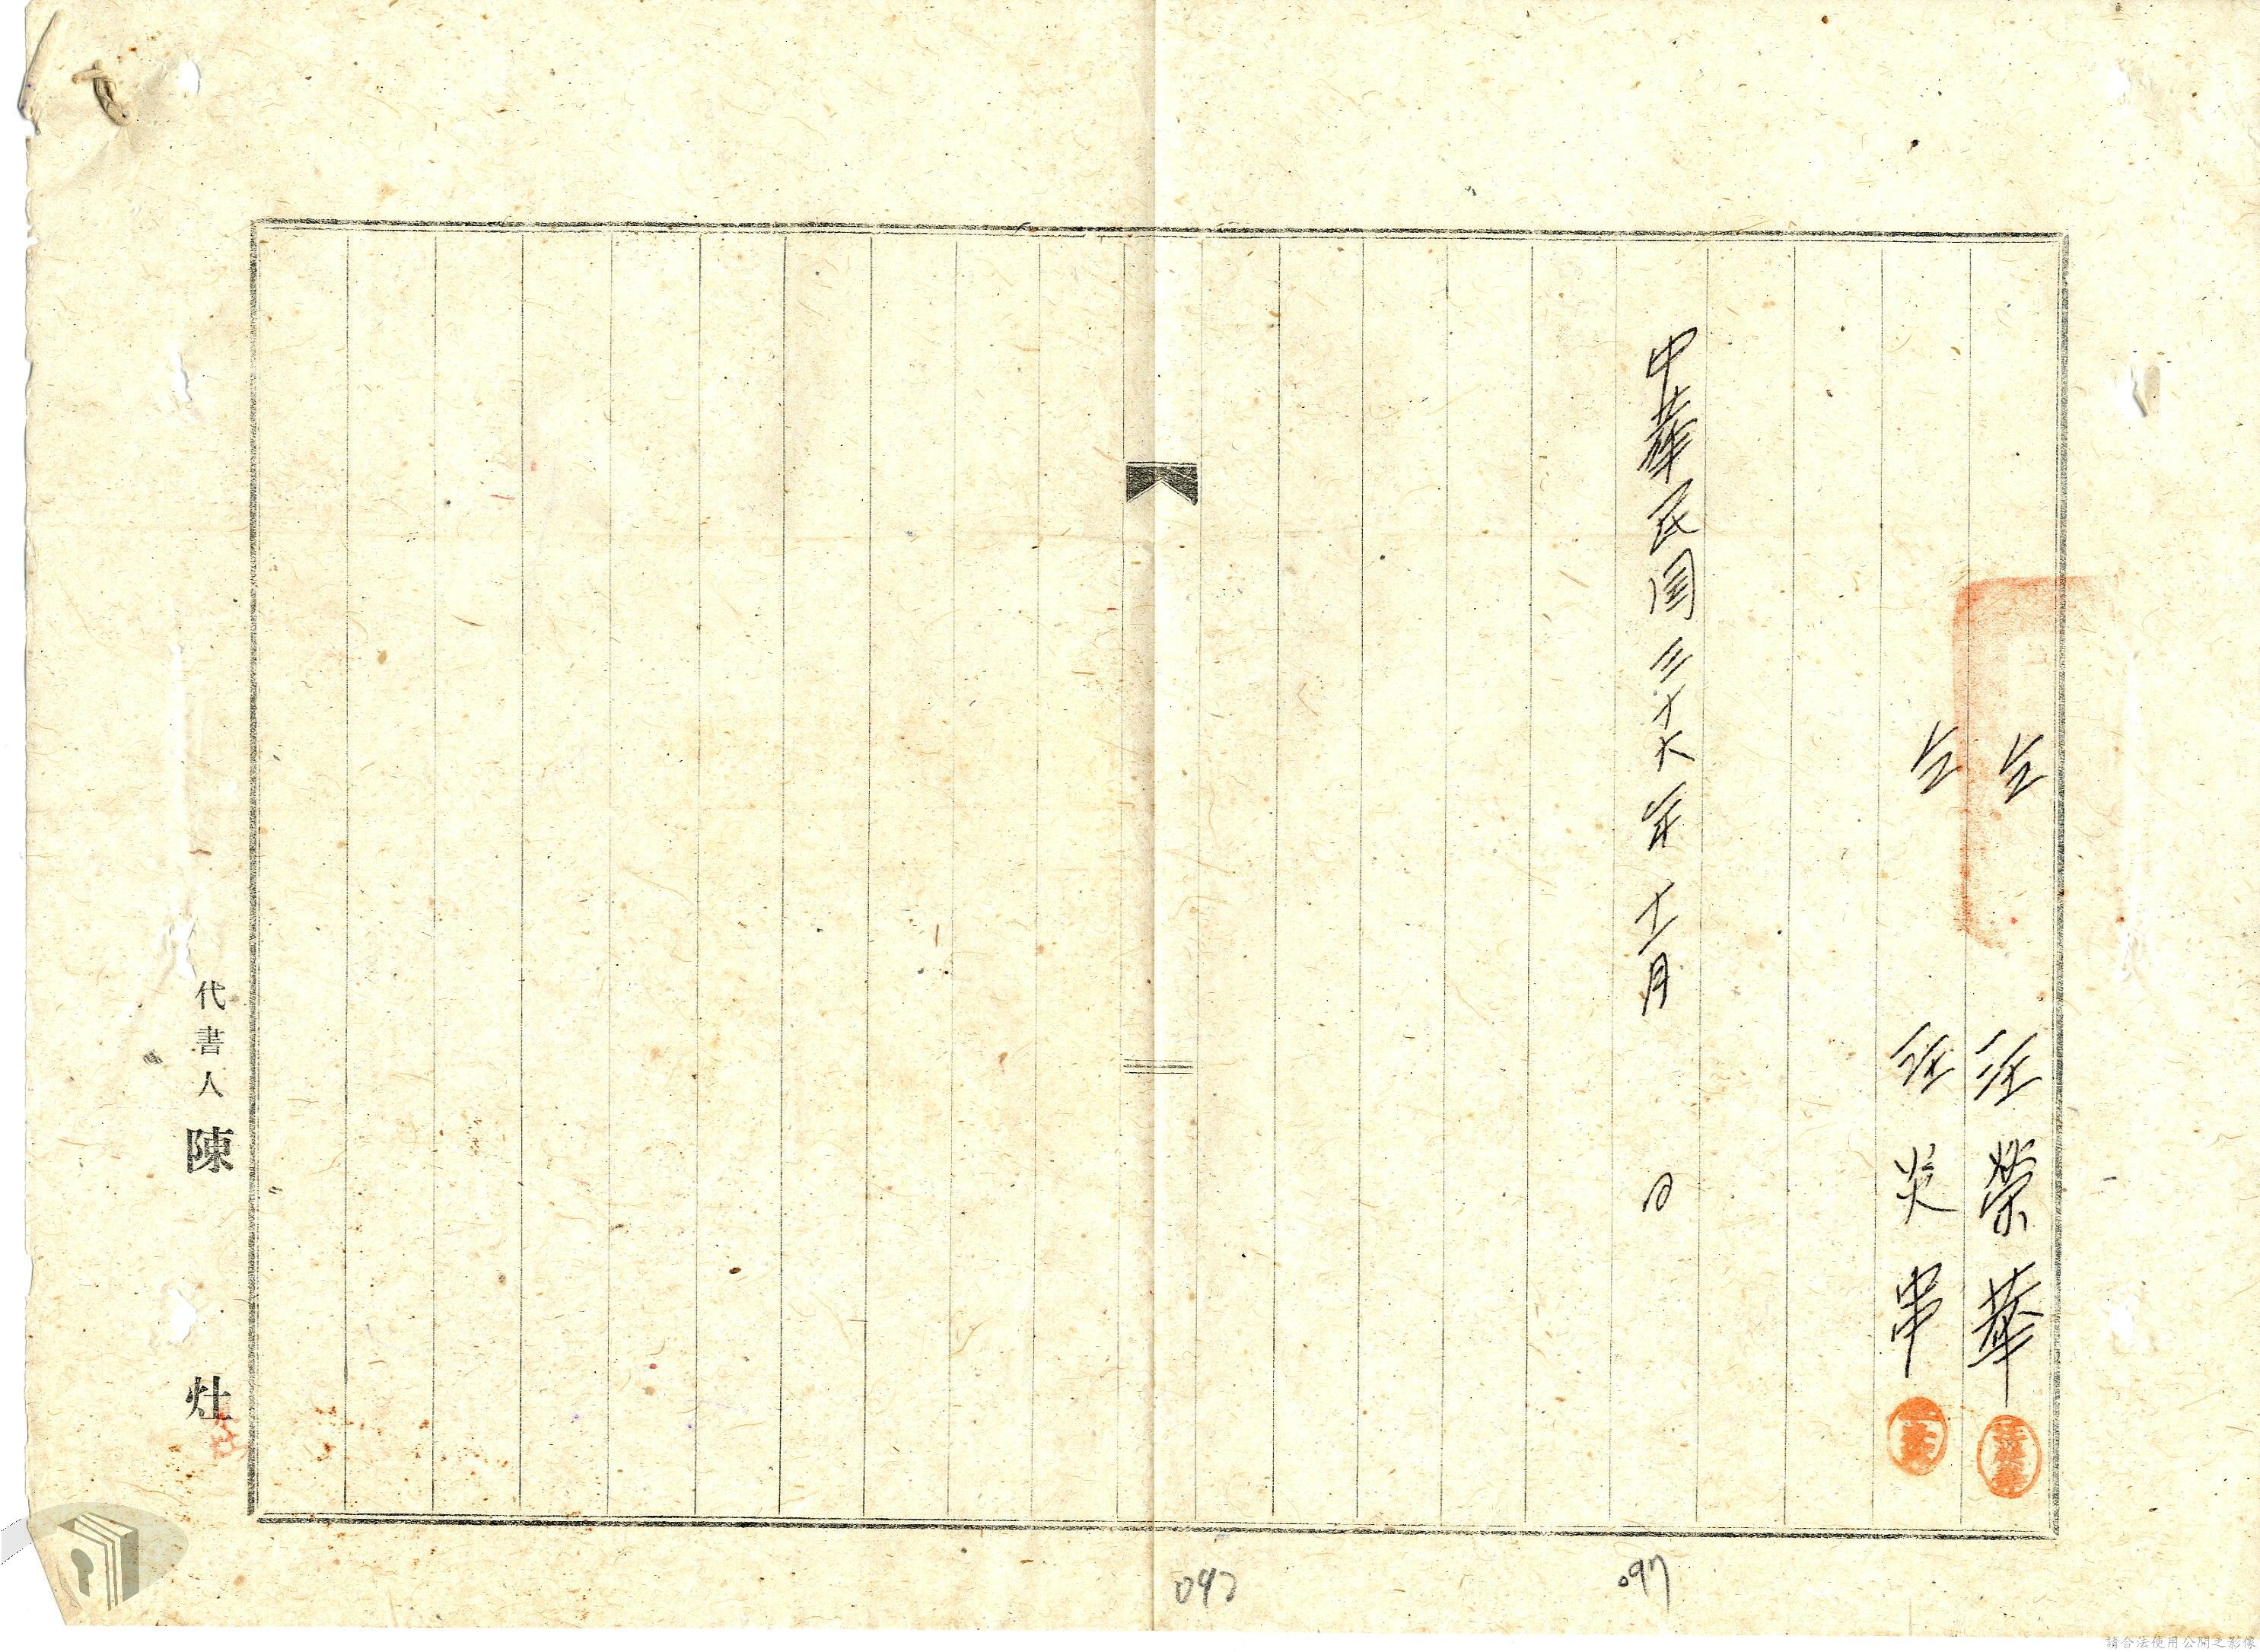 仝　汪榮華
仝　汪炎串
中華民国三十六年十一月　日
代書人 陳 灶
097
097
請合法使用公開之影像